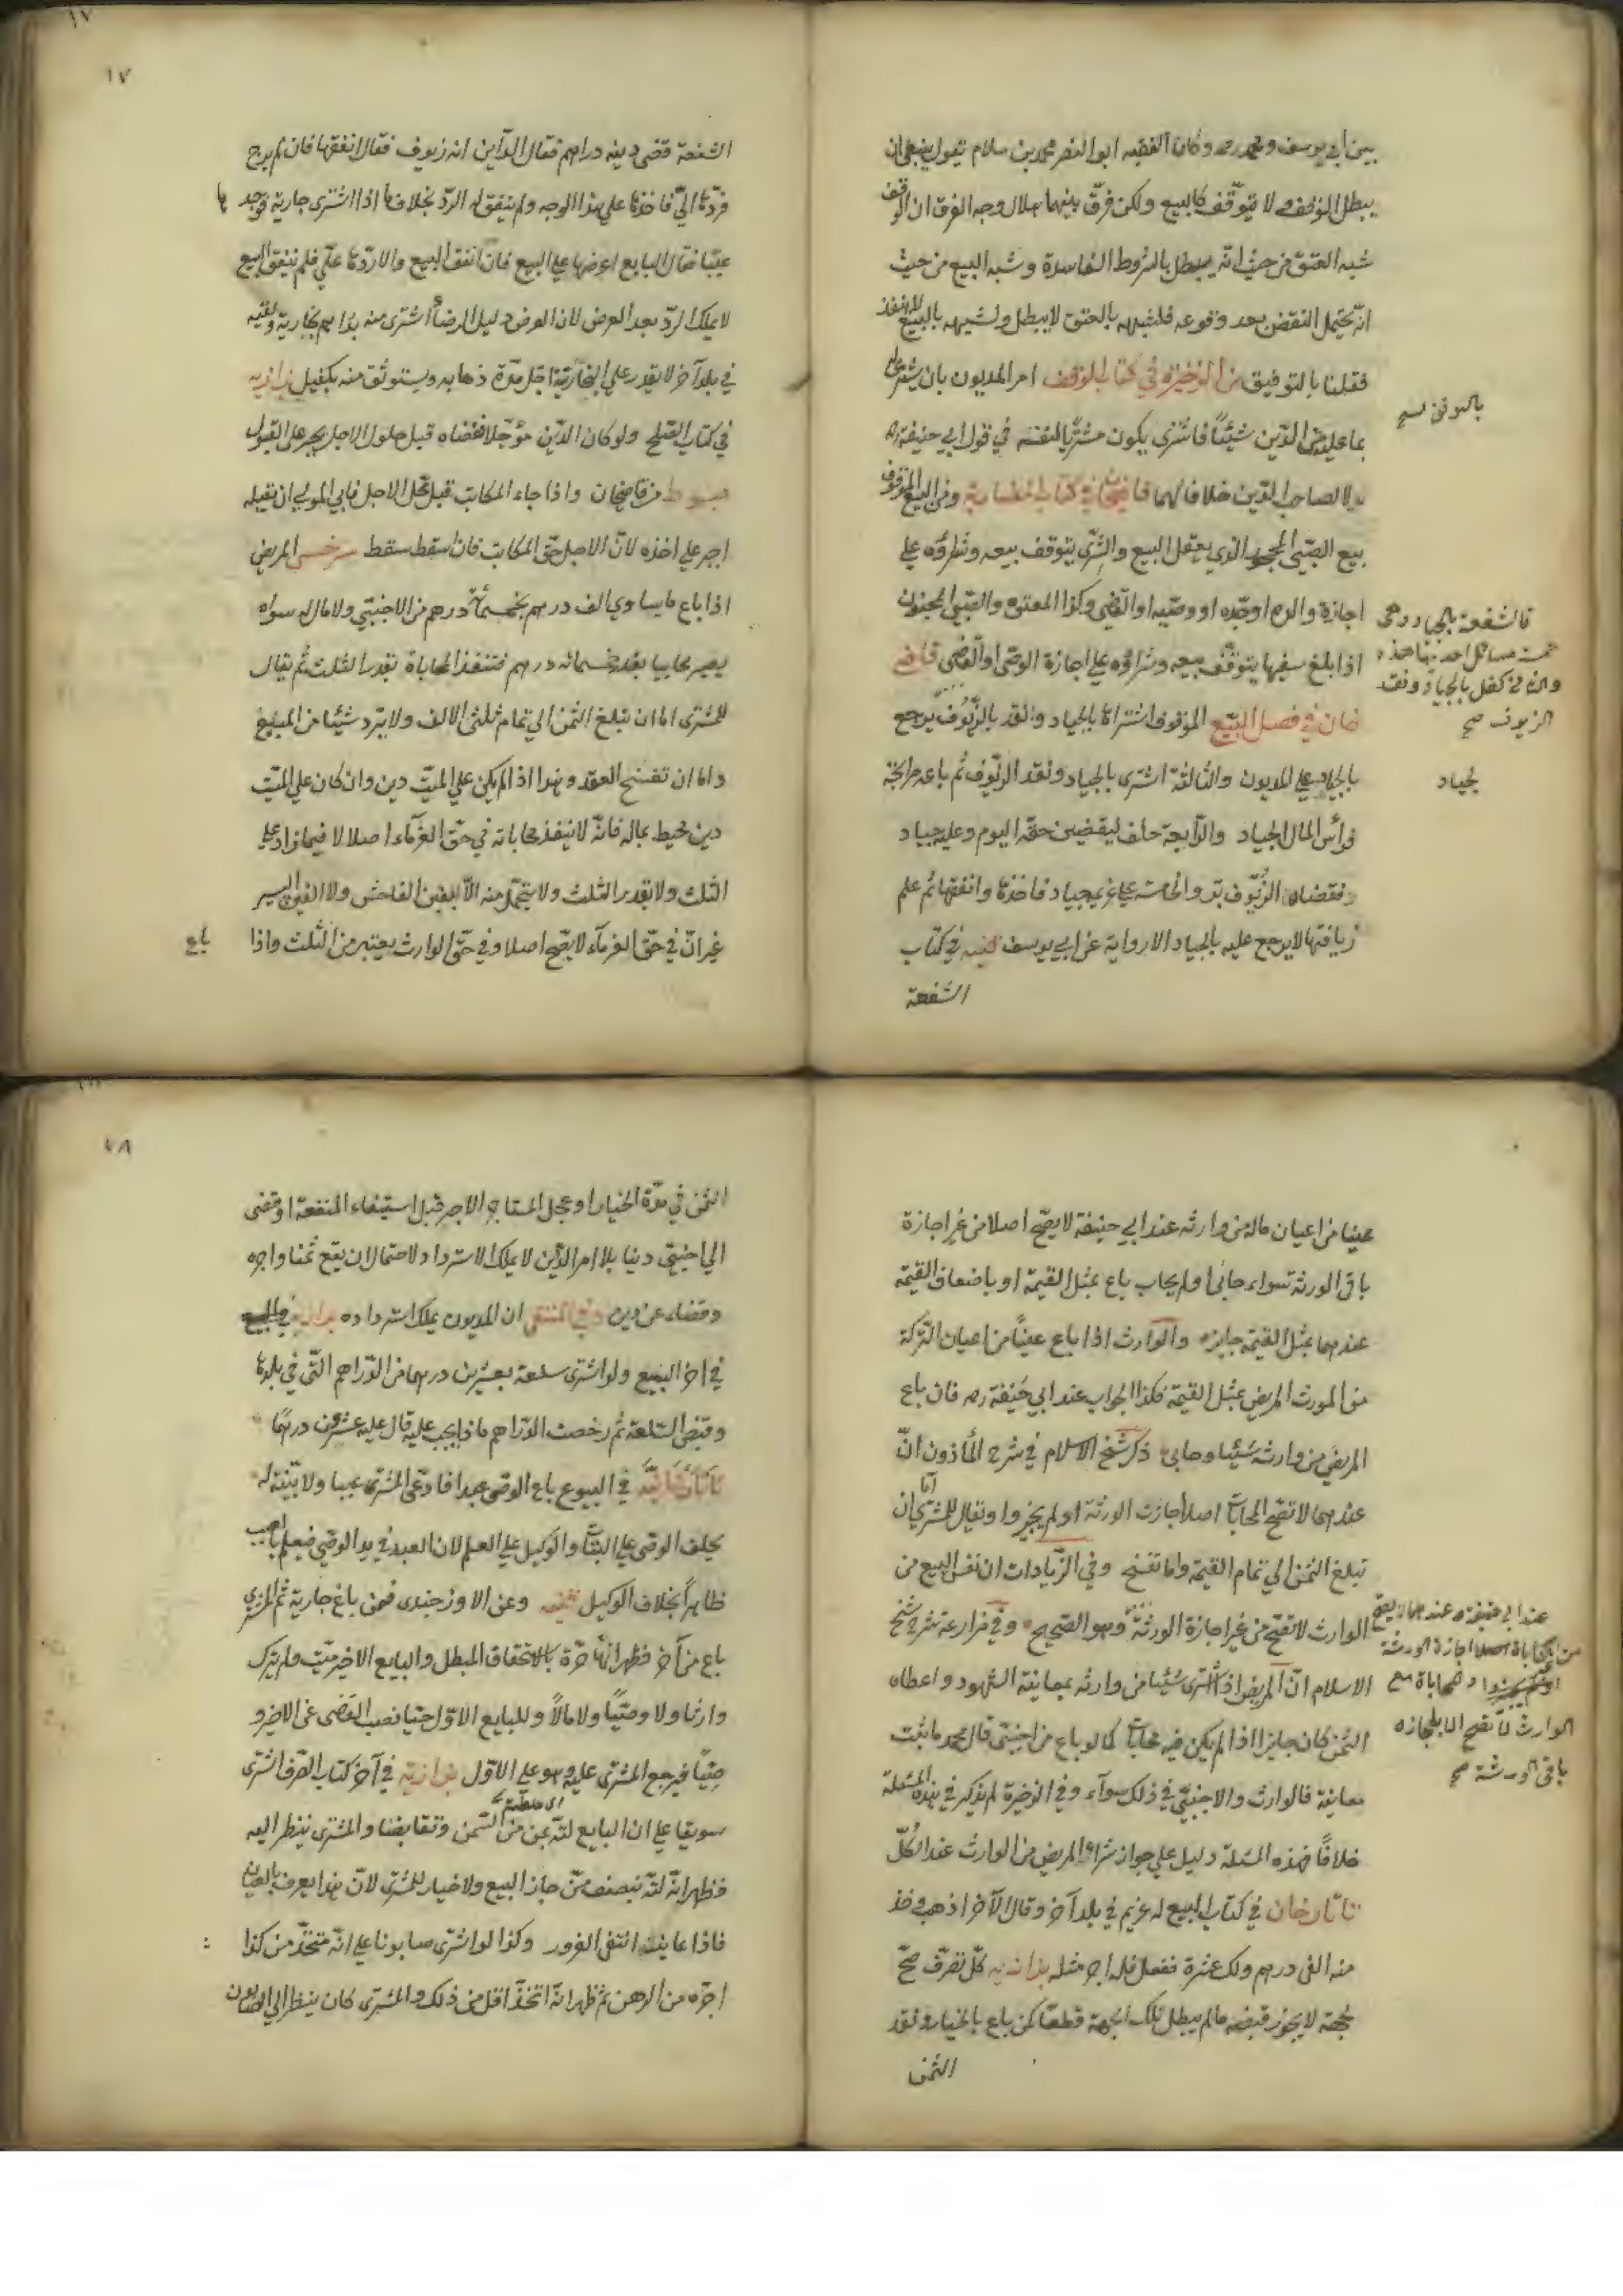 بين أبي يوسف ومحمد رحه وكان الفقيه ابو النصر محمد بن سلام يقول ينبغي ان
يبطل الوقف ولا يتوقف كالبيع ولكن فرق بينهما هلال وجه الفرق ان الوقف
شبه العتق من حيث انه يبطل بالشروط الفاسدة وشبه البيع من حيث
انه يحتمل النقض بعد وقوعه فلشبهه بالعتق لا يبطل ولشبهه بالبيع لا ينفذ
فقلنا بالتوفيق من الذخيرة في كتاب الوقف امر المديون بان يشترى له
بما عليه من الدين شيئا فاشترى يكون مشتريا لنفسه في قول ابي حنيفة ره
لا لصاحب الدين خلافا لهما قاضيخان في كتاب المضاربة ومن البيع الموقوف
بيع الصبي المحجور الذي يعقل البيع والشرى يتوقف بيعه وشراؤه على
اجازة والده او جده او وصيه او القضى وكذا المعتوه والصبى المجنون
اذا بلغ سفيها يتوقف بيعه وشراؤه على اجازة الوصى او القضى قاضى
خان في فصل البيع الموقوف اشتراها بالجياد ونقد بالزيوف يرجع
بالجياد على المديون والثالثة اشترى بالجياد ونقد الزيوف ثم باعه مرابحة
فرأس المال الجياد والرابعة حلف ليقضين حقه اليوم وعليه جياد
فقضاه الزيوف بر والخامسة على غريم جياد فاخذها وانفقها ثم علم
زيافتها لا يرجع عليه بالجياد الا رواية عن ابي يوسف قنيه في كتاب
الشفعة
بالتوفيق صح
فالشفعة بالجياد وهى
خمسة مسائل احديها هذه
والثانية كفل بالجياد ونقد
الزيوف صح
بجياد
١٧
الشفعة قضى دينه دراهم فقال الدآين انه زيوف فقال انفقها فان لم يرج
فردها الي فاخذها على هذا الوجه ولم ينفق له الرد بخلاف ما اذا اشترى جارية فوجد بها
عيبا فقال البايع اعرضها على البيع فان انفق البيع والا ردها علي فلم ينفق البيع
لا يملك الرد بعد العرض لان العرض دليل الرضا اشترى منه بدراهم بخارية ولقيه
في بلد آخر لا يقدر على البخارية اجل مدة ذهابه ويستوثق منه بكفيل بزازيه
في كتاب الصلح ولو كان الدين مؤجلا فقضاه قبل حلول الاجل يجبر على القبول
مبسوط من قاضيخان واذا جاء المكاتب قبل محل الاجل فابي المولى ان يقبله
اجبر على اخذه لان الاجل حق المكاتب فان اسقط سقط سرخسى المريض
اذا باع ما يساوي الف درهم بخمسمائة درهم من الاجنبي ولا مال له سواه
يصير محابيا بقدر خمسمائه درهم فتنفذ المحاباة بقدر الثلث ثم يقال
للمشترى اما ان تبلغ الثمن الي تمام ثلثى الالف ولا يرد شيئا من المبيع
واما ان تفسخ العقد وهذا اذا لم يكن على الميت دين وان كان على الميت
دين محيط بماله فانه لا ينفذ محاباته في حق الغرمآء اصلا لا فيما زاد على
الثلث ولا بقدر الثلث ولا يتحمل منه الا الغبن الفاحش ولا الغبن اليسير
غير ان في حق الغرمآء لا يصح اصلا وفي حق الوارث يعتبر من الثلث واذا
باع
عينا من اعيان ماله من وارثه عند ابي حنيفة لا يصح اصلا من غير اجازة
باقي الورثة سواء حابى او لم يحاب باع بمثل القيمة او باضعاف القيمة
عندهما بمثل القيمة جايزه والوارث اذا باع عينا من اعيان التركة
من المورث المريض بمثل القيمة فكذا الجواب عند ابي حنيفة ره فان باع
المريض من وارثه شيئا وحابى ذكر شيخ الاسلام في شرح المأذون ان
عندهما لا تصح المحاباة اصلا اجازت الورثة او لم يجيزوا ويقال للمشترى اما ان
تبلغ الثمن الي تمام القيمة واما تفسخ وفي الزيادات ان نفس البيع من
الوارث لا تصح من غير اجازة الورثة وهو الصحيح وفي مزارعة شرح شيخ
الاسلام ان المريض اذا اشترى شيئا من وارثه بمعاينة الشهود واعطاه
الثمن كان جايزا اذا لم يكن فيه محاباة كما لو باع من اجنبى قال محمد ما يثبت
معاينة فالوارث والاجنبي في ذلك سوآء وفي الذخيرة لم يذكر في هذه المسئلة
خلافا فهذه المسئلة دليل على جواز شراء المريض من الوارث عند الكل
تاتارخان في كتاب البيع له غريم في بلد آخر وقال لآخر اذهب وخذ
منه الفي درهم ولك عشرة ففعل فله اجر مثله بزازيه كل تصرف صح
بجهة لا يجوز قبضه ما لم يبطل تلك الجهة قطعا كمن باع بالخيار ونقد
الثمن
عند ابي حنيفة وعندهما لا يصح
من المحاباة اصلا اجازة الورثة
المحاباة مع
الوارث لا تصح الا باجازه
باقي الورثة صح
الثمن في مدة الخيار او عجل المستاجر الاجر قبل استيفاء المنفعة او قضى
الي اجنبي دينا بلا امر الدين لا يملك الاسترداد لاحتمال ان يقع ثمنا واجره
وقضاء عن دين وفي المنتقى ان المديون يملك استرداده بزازيه
في اخر البيع ولو اشترى سلعة بعشرين درهما من الدراهم التي في بلدها
وقبض السلعة ثم رخصت الدراهم ماذا يجب عليه قال عليه عشرون درهما
في البيوع باع الوصى عبدا فادعى المشترى عيبا ولا بينة له
يحلف الوصى على البتات والوكيل على العلم لان العبد في يد الوصي فيعلم باعيب
ظاهرا بخلاف الوكيل قنيه وعن الاوزجندى فمن باع جارية ثم المشتري
باع من آخر فظهر انها حرة بالاستحقاق المبطل والبايع الاخير ميت ولم يترك
وارثا ولا وصيا ولا مالا وللبايع الاول حيا نصب القضى عن الاخير و
صيا فيرجع المشترى عليه وهو على الاول بزازيه في آخر كتاب الصرف اشترى
سويقا على ان البايع لته بمن من السمن وتقابضا والمشترى ينظر اليه
فظهر انه لته بنصف من جاز البيع ولا خيار للمشترى لان هذا يعرف بالعيان
فاذا عاينه انتفى الغرور وكذا لو اشترى صابونا على انه متخذ من كذا
اجره من الدهن ثم ظهر انه اتخذ اقل من ذلك والمشترى كان ينظر الي الصابون